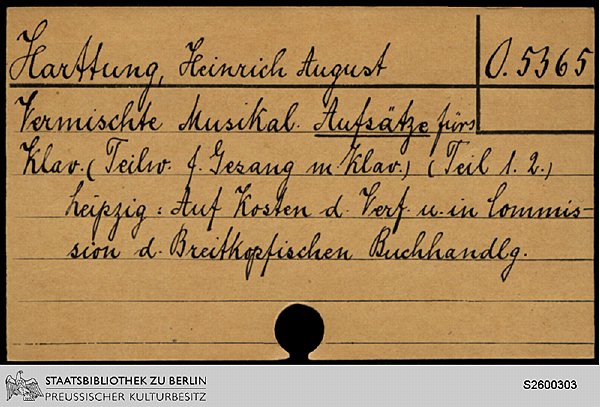 Harttung, Heinrich August
O. 5365
Vermischte Musikal. Aufsätze fürs
Klav. (Teilw. f. Gezang m Klav.) (Teil 1. 2.)
Leipzig: Auf Kosten d. Verf. u. in Commis-
sion d. Breitkopfischen Buchhandlg.
STAATSBIBLIOTHEK ZU BERLIN
PREUSSISCHER KULTURBESITZ
S2600303